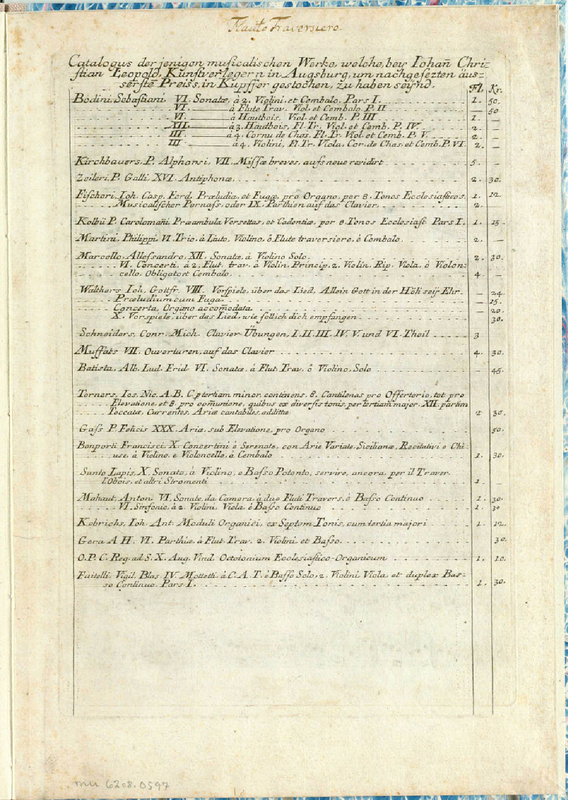 Flauto Traversiero.
Catalogus der jenigen musicalischen Werke, welche, bey Iohañ Chri-
stian Leopold, Kunstverlegern in Augsburg, um nachgesezten äus-
serste Preiss, in Kupffer gestochen, zu haben seÿnd.
Fl. Kr.
Bodini, Sebastiani VI. Sonatæ, à 2. Violini, et Cembalo. Pars I. 1. 50.
VI. à Flute Trav. Viol. et Cembalo. P. II 50
VI. à Hautbois, Viol. et Comb. P. III 1. —
XII. à 4. Hautbois, Fl. Tr. Viol. et Comb. P. IV. 2. —
III à 4. Cornu de Chas. Fl. Tr. Viol et Comb. P. V. 2. —
III à 4. Violini, Fl. Tr. Viola, Cor. de Chas. et Comb. P. VI. 2. —
Kirchbauers, P. Alphonsi. VII. Missæ breves, aufs neue revidirt 5. —
Zeileri, P. Galli XVI. Antiphonæ 2. 30.
Fischeri, Ioh. Casp. Ferd. Præludia, et Fugæ, pro Organo, per 8. Tonos Ecclesiasticos. 1. 12.
Musicalischer Pernass, oder IX. Parthien auf das Clavier 2. —
Kolbii P. Carolomañi, Præambula, Versettas, et Cadentiæ, per 8. Tonos Ecclesiast Pars I. 1. 15.
Martini, Philippi VI. Trio, à Lauto, Violino, ô Flute traversiere, ô Cembalo 2. —
Marcello, Allessandro, XII. Sonata, à Violino Solo 2. 30.
VI. Concerti, à 2. Flut. trav. ô Violin. Princip. 2. Violin. Rip. Viola, ô Violon-
cello, Obligatoet Cembalo. 4 —
Walthers, Ioh. Gottfr. VIII. Vorspiele, über das Lied, Allein Gott in der Höh seÿ Ehr. — 24
Præludium cum Fuga — 15.
Concerto, Organo accomodata — 20.
X. Vorspiele, über das Lied, wie soll ich dich empfangen 30.
Schneiders, Conr. Mich. Clavier-Übungen, I. II. III. IV. V. und VI. Theil 3
Muffats VII. Ouverturen, auf das Clavier 4. 30.
Batista, Alb. Lud. Frid. VI. Sonatæ à Flut. Trav. ô Violino, Solo 45.
Torners, Ios. Nic. A. B. C. per tham minor. continens. 8. Cantilenas pro Offertorio, tot pro
Elevatione, et 8. pro com̄unione, quibus ex diversis tonis, per tertiam major. XII. partim
Toccatæ, Currentes, Ariæ cantabiles, additæ 2 30.
Gass P. Felicis XXX. Ariæ, sub Elevatione, pro Organo 50.
Bonporti Francisci, X. Concertini è Serenate, con Arie Variate, Siciliane, Recitativi e Chi-
use, à Violino, e Violoncello, ô Cembalo 1. 30.
Santo Lapis, X. Sonata, à Violino, e Basso Potonto, servire, ancora, per il Traver.
l'Obois, et altri Stromenti 1
Mahaut, Anton. VI. Sonate, da Camera, à due Fluti Travers, ô Basso Continuo 1. 30.
VI. Sinfonie, à 2. Violin. Viola, è Basso Continuo 1. 30
Kobrichs, Ioh. Ant. Moduli Organici, ex Septem Tonis, cum tertia majori 1. 12.
Gera A. H. VI. Parthiæ, à Flut. Trav. 2. Violini, et Basso 30.
O. P. C. Reg. ad. S. X. Aug. Vind. Octotonium Ecclesiastico-Organicum 1. 10.
Faitelli, Vigil. Blas. IV. Mottetti, à C. A. T. ô Basso Solo, 2. Violini, Viola, et duplex Bas-
so Continuo, Pars I. 1. 30.
mu 6208.0597